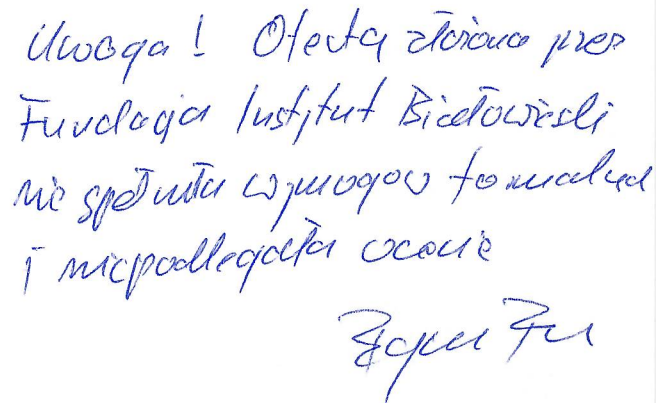 Uwaga! Oferta złożona przez
Fundację Instytut Białowieski
nie spełniła wymogów formalnych
i nie podlegała ocenie